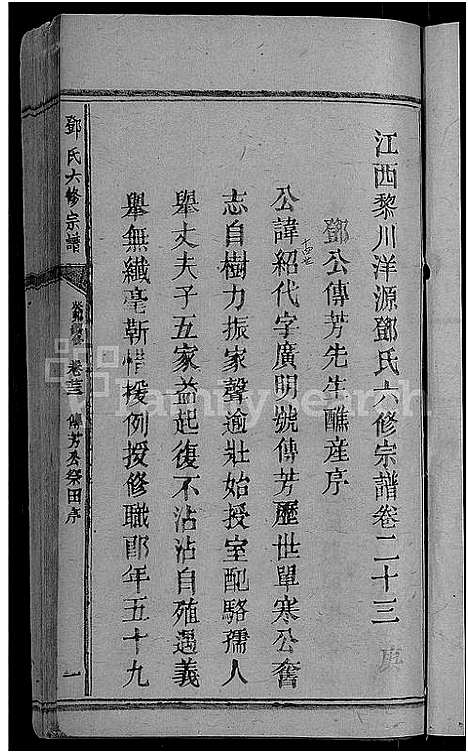 江西黎川洋源鄧氏六修宗譜卷二十三
鄧公傳芳先生醮産序
公諱紹代字廣明號傳芳歷世單寒公奮
志自樹力振家聲逾壯始授室配駱孺人
舉丈夫子五家益起復不沾沾自殖遇義
舉無纖毫靳惜援例授修職郎年五十九
鄧氏六修宗譜
卷二十三
傳芳公祭田序
一
FamilySearch